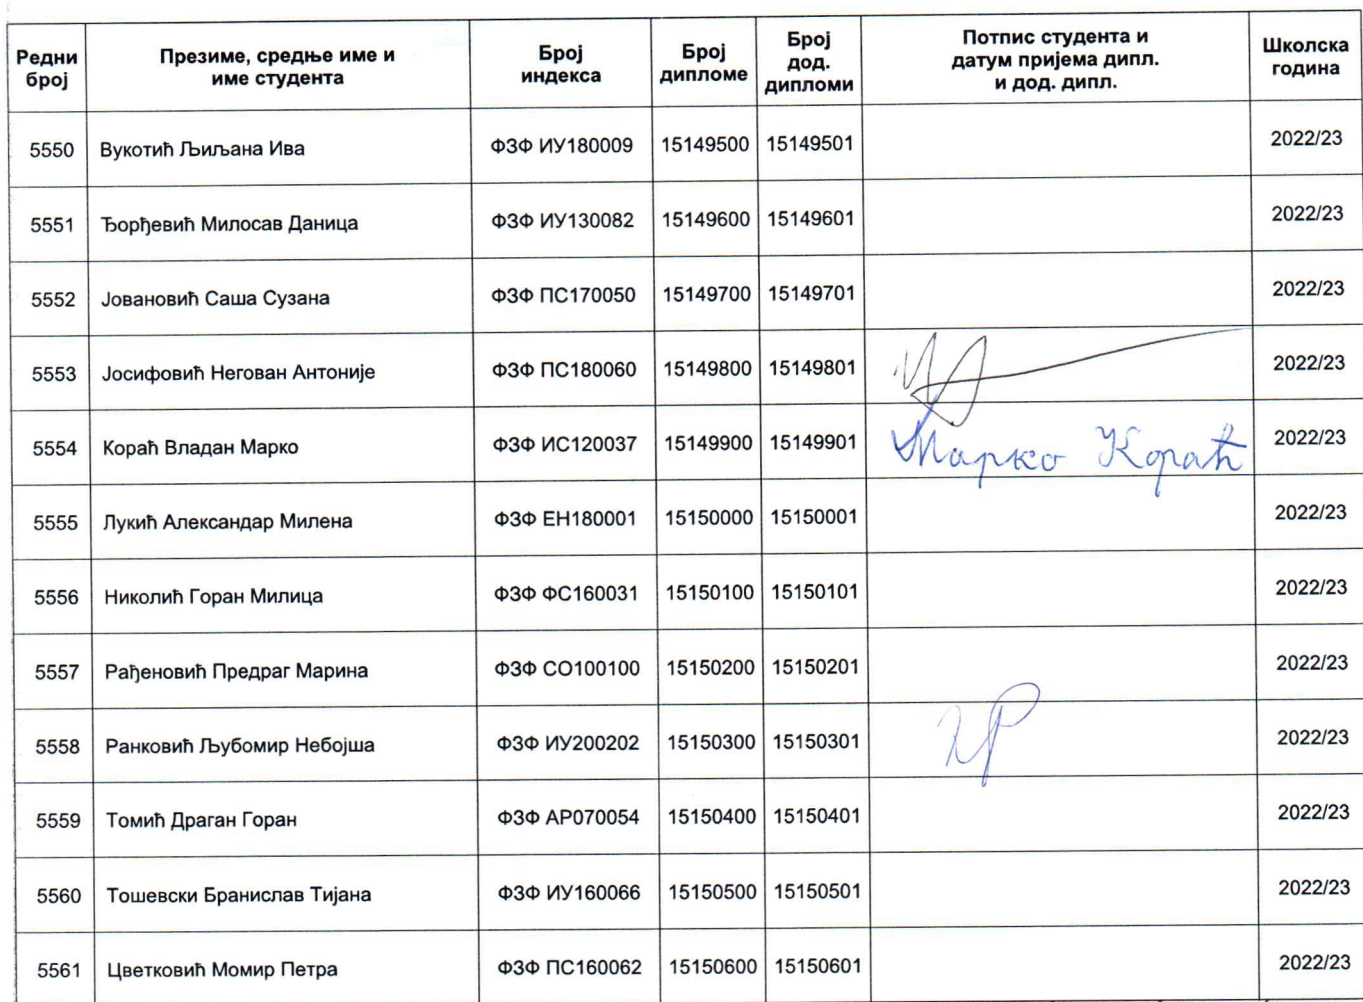 Редни број | Презиме, средње име и име студента | Број индекса | Број дипломе | Број дод. дипломи | Потпис студента и датум пријема дипл. и дод. дипл. | Школска година
5550 | Вукотић Љиљана Ива | ФЗФ ИУ180009 | 15149500 | 15149501 | | 2022/23
5551 | Ђорђевић Милосав Даница | ФЗФ ИУ130082 | 15149600 | 15149601 | | 2022/23
5552 | Јовановић Саша Сузана | ФЗФ ПС170050 | 15149700 | 15149701 | | 2022/23
5553 | Јосифовић Негован Антоније | ФЗФ ПС180060 | 15149800 | 15149801 | | 2022/23
5554 | Кораћ Владан Марко | ФЗФ ИС120037 | 15149900 | 15149901 | Марко Кораћ | 2022/23
5555 | Лукић Александар Милена | ФЗФ ЕН180001 | 15150000 | 15150001 | | 2022/23
5556 | Николић Горан Милица | ФЗФ ФС160031 | 15150100 | 15150101 | | 2022/23
5557 | Рађеновић Предраг Марина | ФЗФ СО100100 | 15150200 | 15150201 | | 2022/23
5558 | Ранковић Љубомир Небојша | ФЗФ ИУ200202 | 15150300 | 15150301 | | 2022/23
5559 | Томић Драган Горан | ФЗФ АР070054 | 15150400 | 15150401 | | 2022/23
5560 | Тошевски Бранислав Тијана | ФЗФ ИУ160066 | 15150500 | 15150501 | | 2022/23
5561 | Цветковић Момир Петра | ФЗФ ПС160062 | 15150600 | 15150601 | | 2022/23